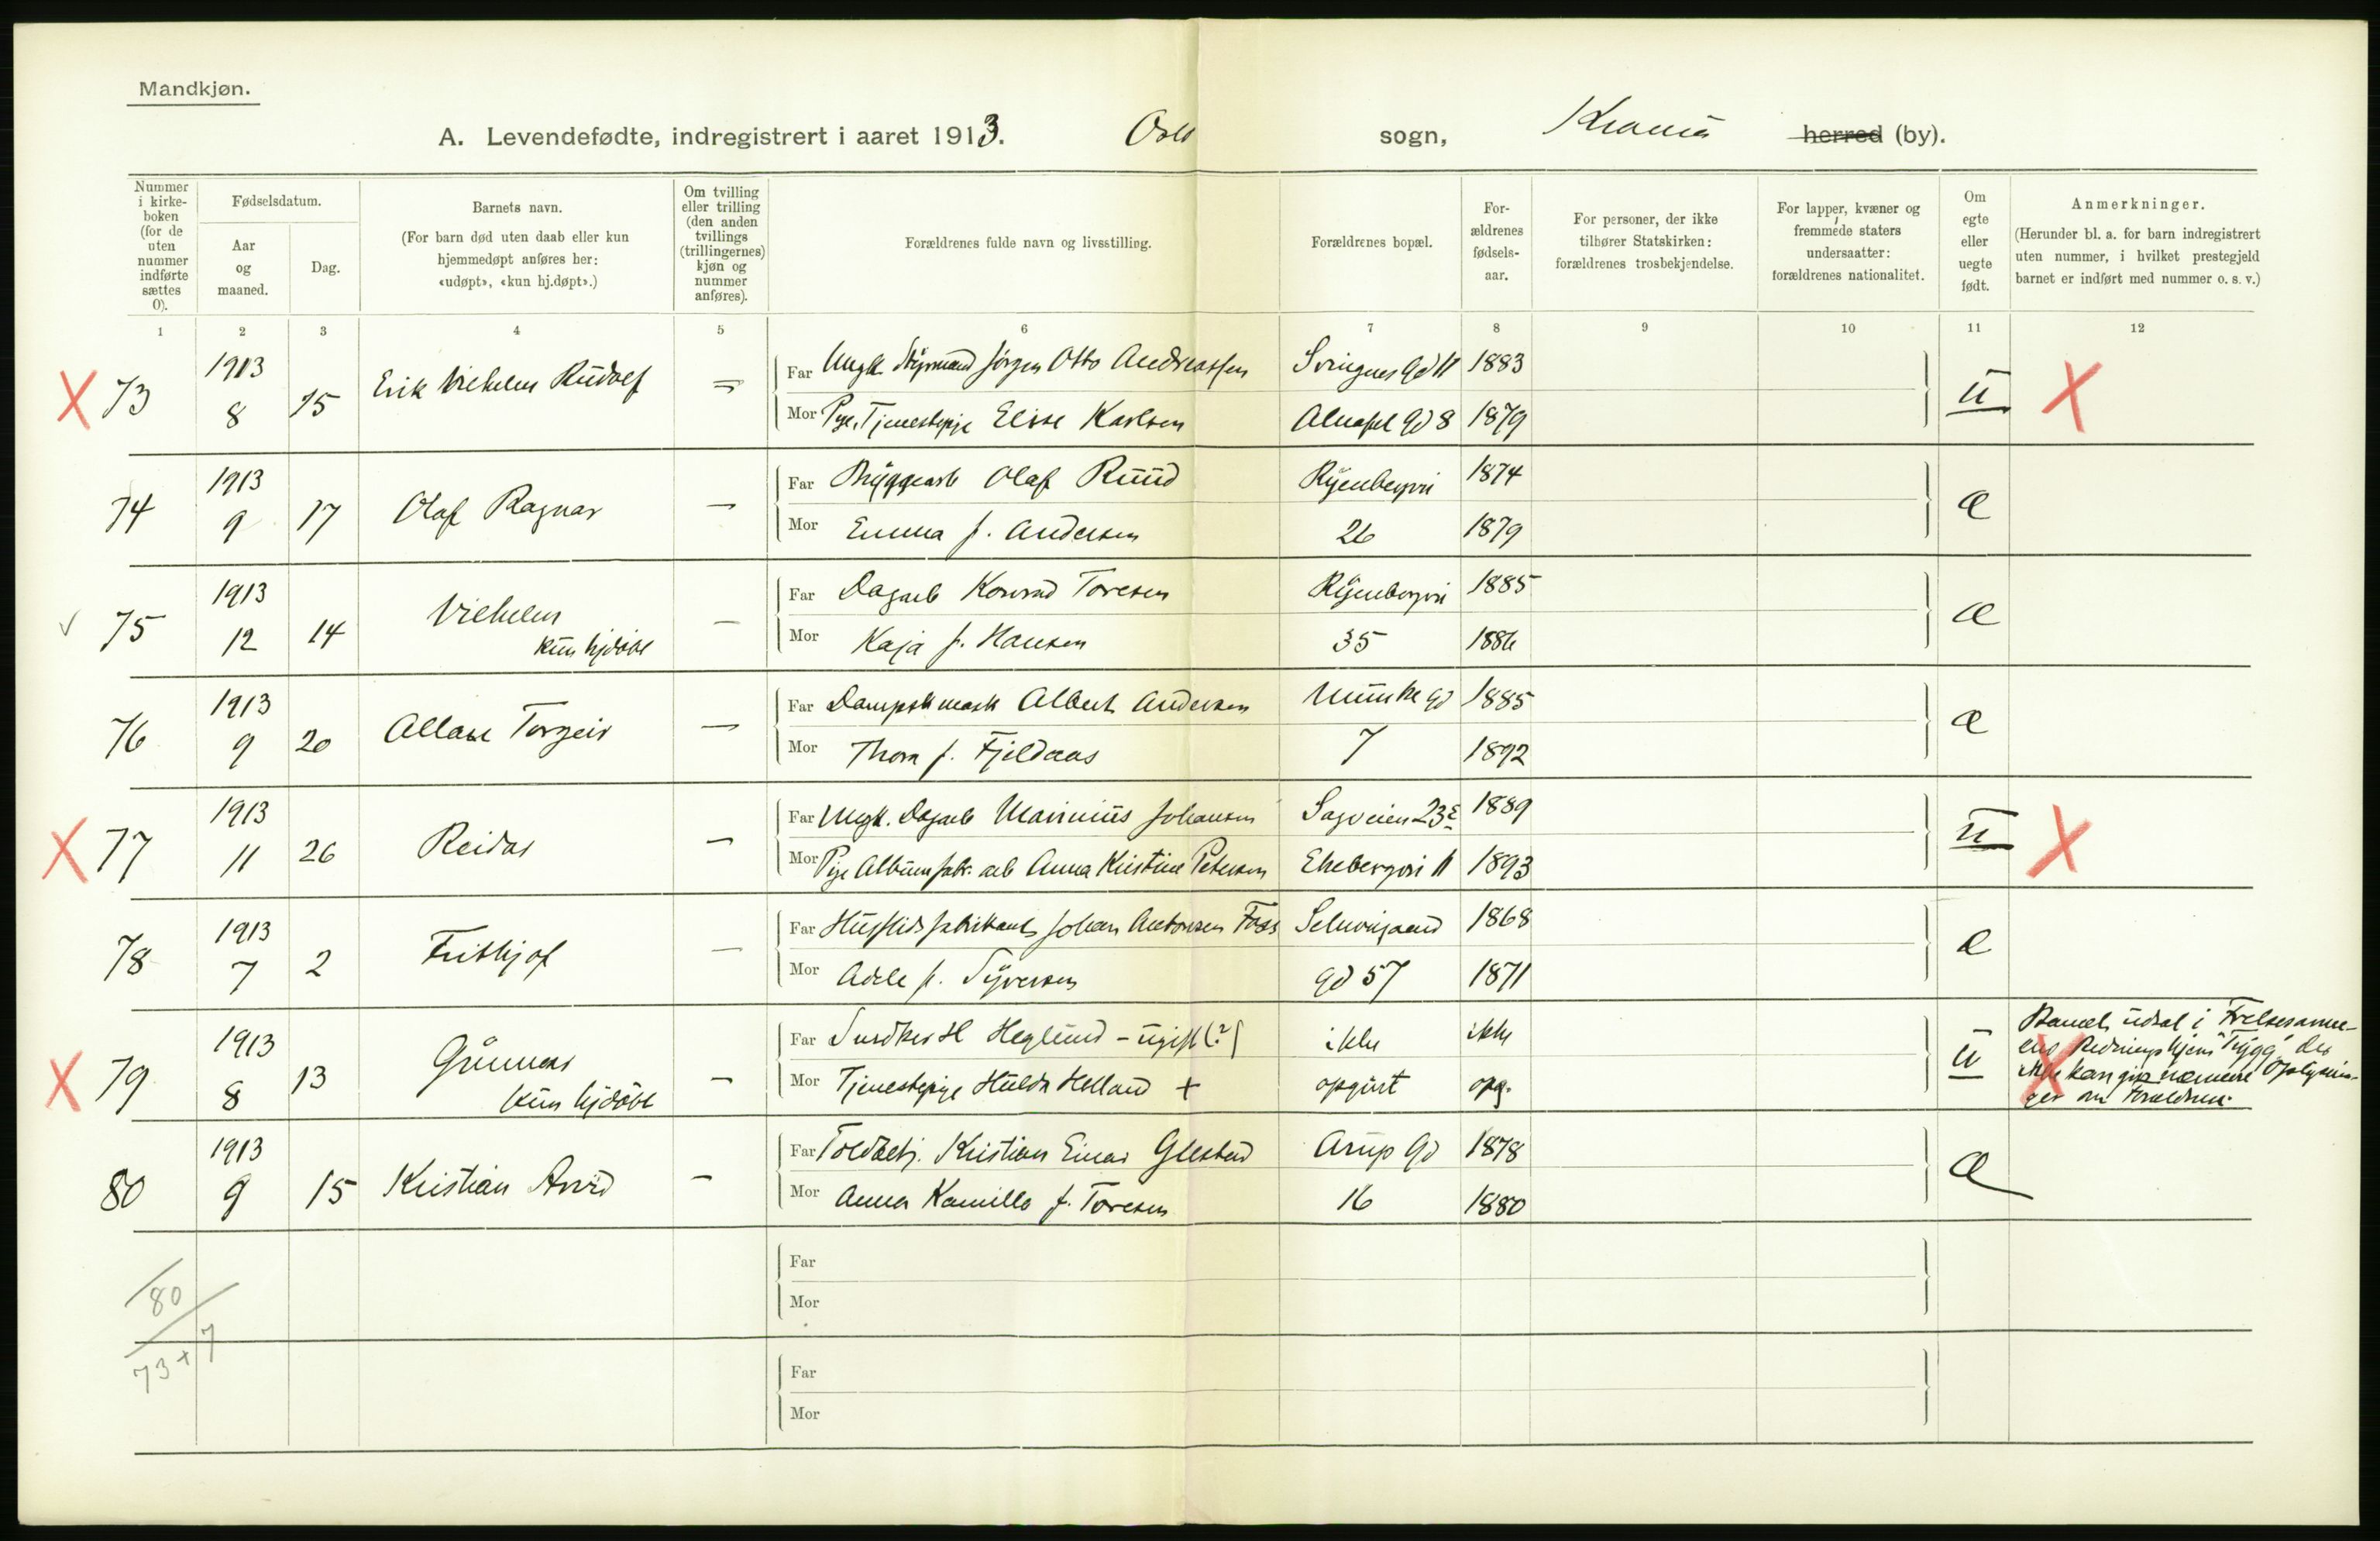 Mandkjøn.
A. Levendefødte, indregistrert i aaret 1913. Oslo sogn, Kr.ania herred (by).
Nummer i kirke- boken (for de uten nummer indførte sættes 0).
Fødselsdatum.
Aar og maaned.
Dag.
Barnets navn.
(For barn død uten daab eller kun hjemmedøpt anføres her: «udøpt», «kun hj.døpt».)
Om tvilling eller trilling (den anden tvillings (trillingernes) kjøn og nummer anføres).
Forældrenes fulde navn og livsstilling.
Forældrenes bopæl.
For- ældrenes fødsels- aar.
For personer, der ikke tilhører Statskirken: forældrenes trosbekjendelse.
For lapper, kvæner og fremmede staters undersaatter: forældrenes nationalitet.
Om egte eller uegte født.
Anmerkninger.
(Herunder bl. a. for barn indregistrert uten nummer, i hvilket prestegjeld barnet er indført med nummer o. s. v.)
1 2 3 4 5 6 7 8 9 10 11 12
X 73 1913 8 15 Erik Vilhelm Rudolf — Far Ungk. Styrmand Jørgen Otto Andreassen Svingues Gd 11 1883 u X
Mor Pge. Tjenestepige Elise Karlsen Alnafet Gd 8 1879
74 1913 9 17 Olaf Ragnar — Far Bryggearb Olaf Ruud Ryenbergvei 1874 æ
Mor Emma f. Andersen 26 1879
√ 75 1913 12 14 Vilhelm kun hjdøbt — Far Dagarb Konrad Toresen Ryenbergvei 1885 æ
Mor Kaja f. Hansen 35 1886
76 1913 9 20 Allan Torgeir — Far Dampsk mask Albert Andersen Munke gd 1885 æ
Mor Thora f. Fjeldaas 7 1892
X 77 1913 11 26 Reidar — Far Ungk. Dagarb Marinius Johansen Sagveien 23 c 1889 u X
Mor Pge Albumfabr. arb Anna Kristine Petersen Ekebergvei 11 1893
78 1913 7 2 Frithjof — Far Husflidsfabrikant Johan Antonsen Foss Schweigaard 1868 æ
Mor Adele f. Syversen gd 57 1871
X 79 1913 8 13 Gunnar kun hjdøbt — Far Snedker H Heglund - ugift (?) ikke ikke u X
Mor Tjenestepige Hulda Helland + opgivt opg.
Barnet udsat i Frelsesarme-
ens Redningshjem "Trygg" der
ikke kan give nærmere Oplysnin-
ger om Forældrene.
80 1913 9 15 Kristian Arvid — Far Toldbetj. Kristian Einar Glestad Arup Gd 1878 æ
Mor Anna Kamilla f. Toresen 16 1880
80
Far
Mor
73 + 7
Far
Mor